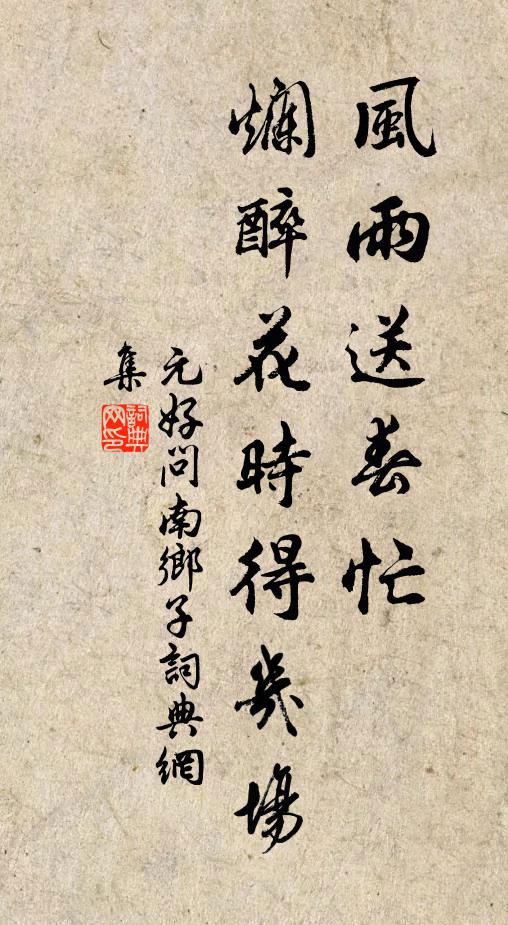 風雨送春忙
爛醉花時得幾場
元好問南鄉子詞典網
集
詞典
网印